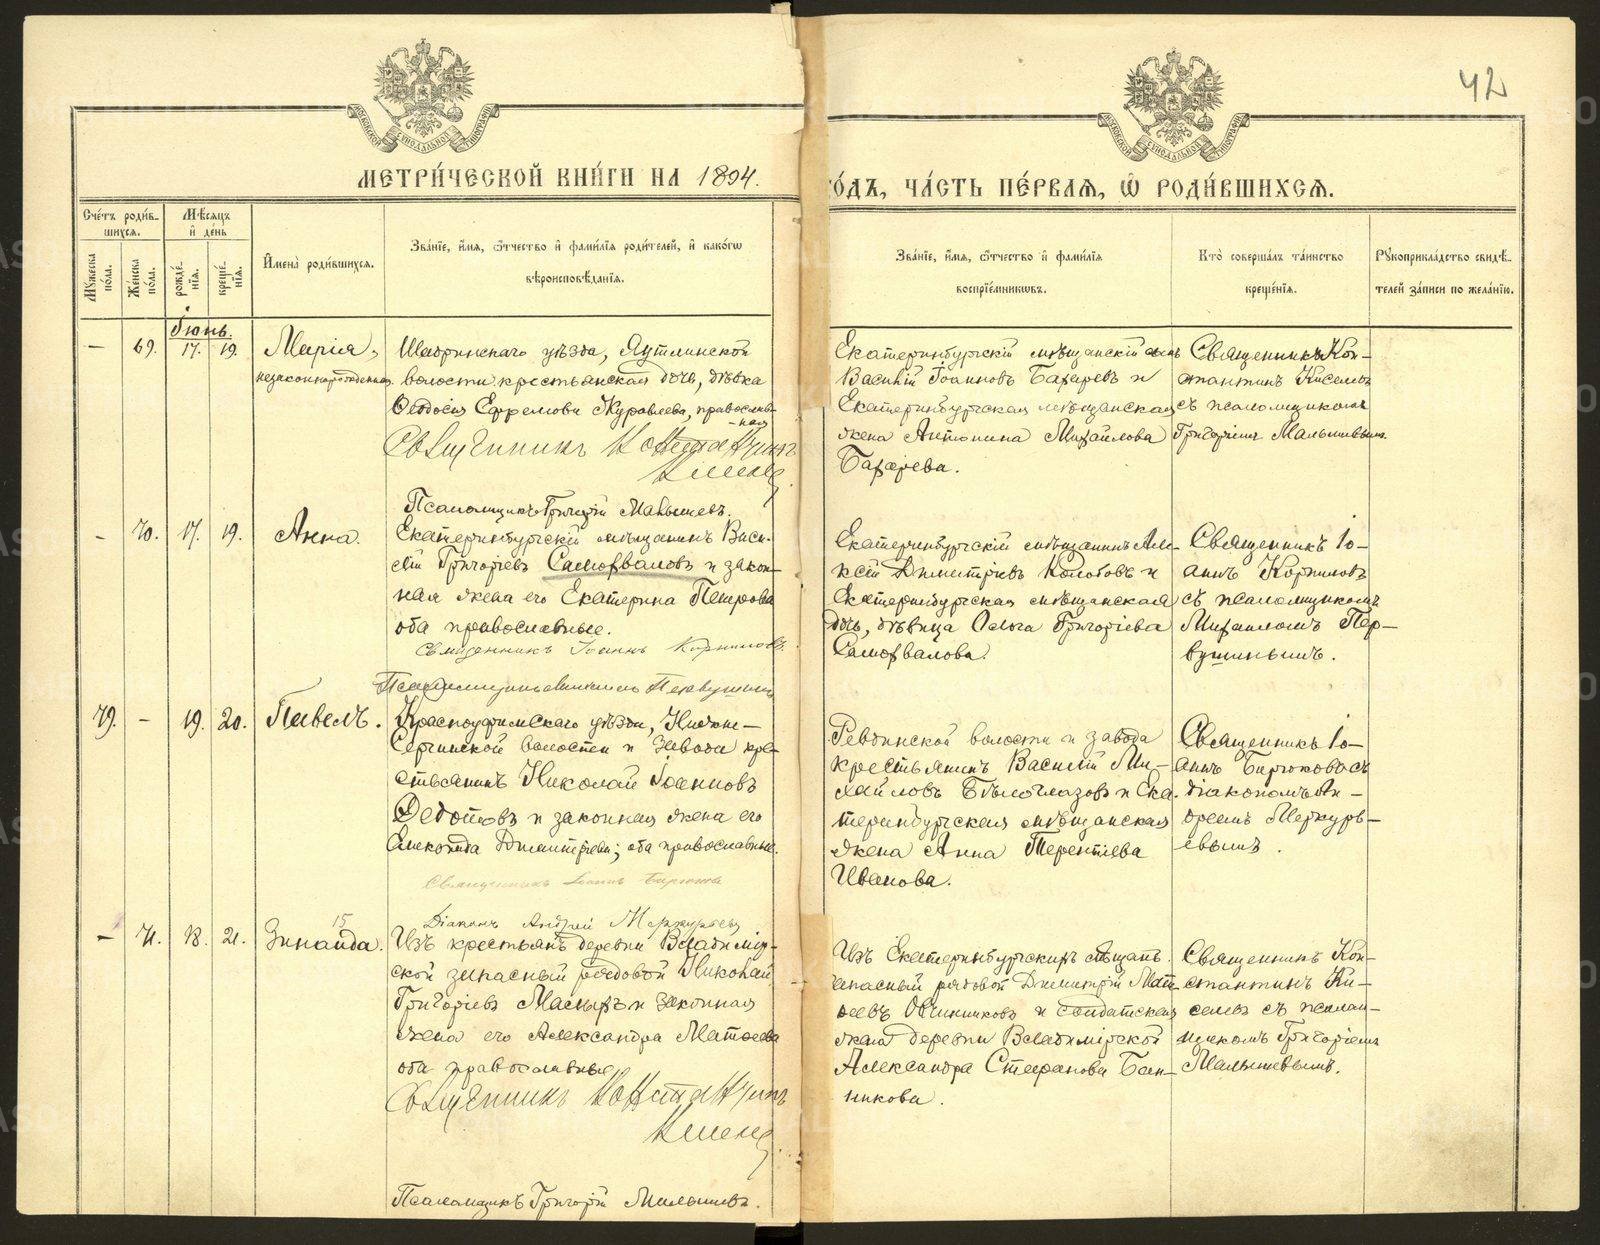 42
МОСКОВСКОЙ СѴНОДАЛЬНОЙ ТИПОГРАФІИ
МОСКОВСКОЙ СѴНОДАЛЬНОЙ ТИПОГРАФІИ
МЕТРИ́ЧЕСКОЙ КНИ́ГИ НА 1894.
ГО́ДЪ, ЧА́СТЬ ПЕ́РВАЯ, Ѽ РОДИ́ВШИХСЯ.
Сче́тъ роди́в-
шихся.
Мꙋжеска по́ла.
Же́нска по́ла.
Мѣ́сяцъ
и҆ де́нь
рожде́нїя.
креще́нїя.
И҆мена̀ роди́вшихся.
Зва́нїе, и҆́мя, ѻ҆́тчество и҆ фами́лїя роди́телей, и҆ како́гѡ
вѣроисповѣ́данїя.
Зва́нїе, и҆́мя, ѻ҆́тчество и҆ фами́лїя
воспрїе́мниковъ.
Кто̀ соверша́лъ та́инство
креще́нїя.
Рꙋкоприкла́дство свидѣ́-
телей за́писи по жела́нїю.
Іюнь.
— 69. 17. 19. Марія,
незаконнорожденная.
Шадринскаго уѣзда, Яутлинской
волости, крестьянская дочь, дѣвка
Ѳеодосія Ефремова Журавлева, православ-
-ная
Священникъ Константинъ
Киселевъ
Псаломщикъ Григорій Малышевъ.
Екатеринбургскій мѣщанскій сынъ
Василій Іоанновъ Бахаревъ и
Екатеринбургская мѣщанская
жена Антонина Михайлова
Бахарева.
Священникъ Кон-
стантинъ Киселевъ
съ псаломщикомъ
Григоріемъ Малышевымъ.
- 70. 17. 19. Анна.
Екатеринбургскій мѣщанинъ Васи-
лій Григоріевъ Саморваловъ и закон-
ная жена его Екатерина Петрова
оба православные.
Священникъ Іоаннъ Корниловъ
Псаломщикъ Михаилъ Первушинъ
Екатеринбургскій мѣщанинъ Але-
ксій Димитріевъ Колобовъ и
Екатеринбургская мѣщанская
дочь, дѣвица Ольга Григоріева
Саморвалова.
Священникъ Іо-
аннъ Корниловъ
съ псаломщикомъ
Михаиломъ Пер-
вушинымъ.
79. - 19. 20. Павелъ.
Красноуфимскаго уѣзда, Нижне-
Сергинской волости и завода кре-
стьянинъ Николай Іоанновъ
Ѳедотовъ и законная жена его
Димитріева; оба православные.
Священникъ Іоаннъ Бирюковъ
Діаконъ Андрей Меркурьевъ
Ревдинской волости и завода
крестьянинъ Василій Ми-
хайловъ Бѣлоглазовъ и Ека-
теринбургская мѣщанская
жена Анна Терентіева
Иванова.
Священникъ Іо-
аннъ Бирюковъ съ
діакономъ Ан-
дреемъ Меркурь-
евымъ.
15
- 71. 18. 21. Зинаида.
Изъ крестьянъ деревни Владимір-
ской запасный рядовой Николай
Григоріевъ и законная
жена его Александра Матѳеева
оба православные
Священникъ Константинъ
Киселевъ
Псаломщикъ Григорій Малышевъ.
Изъ Екатеринбургскихъ мѣщанъ
запасный рядовой Димитрій Мат-
ѳеевъ Овчинниковъ и солдатская
жена деревни Владимірской
Александра Стефанова Бан-
никова.
Священникъ Кон-
стантинъ Ки-
селевъ съ псалом-
щикомъ Григоріемъ
Малышевымъ.